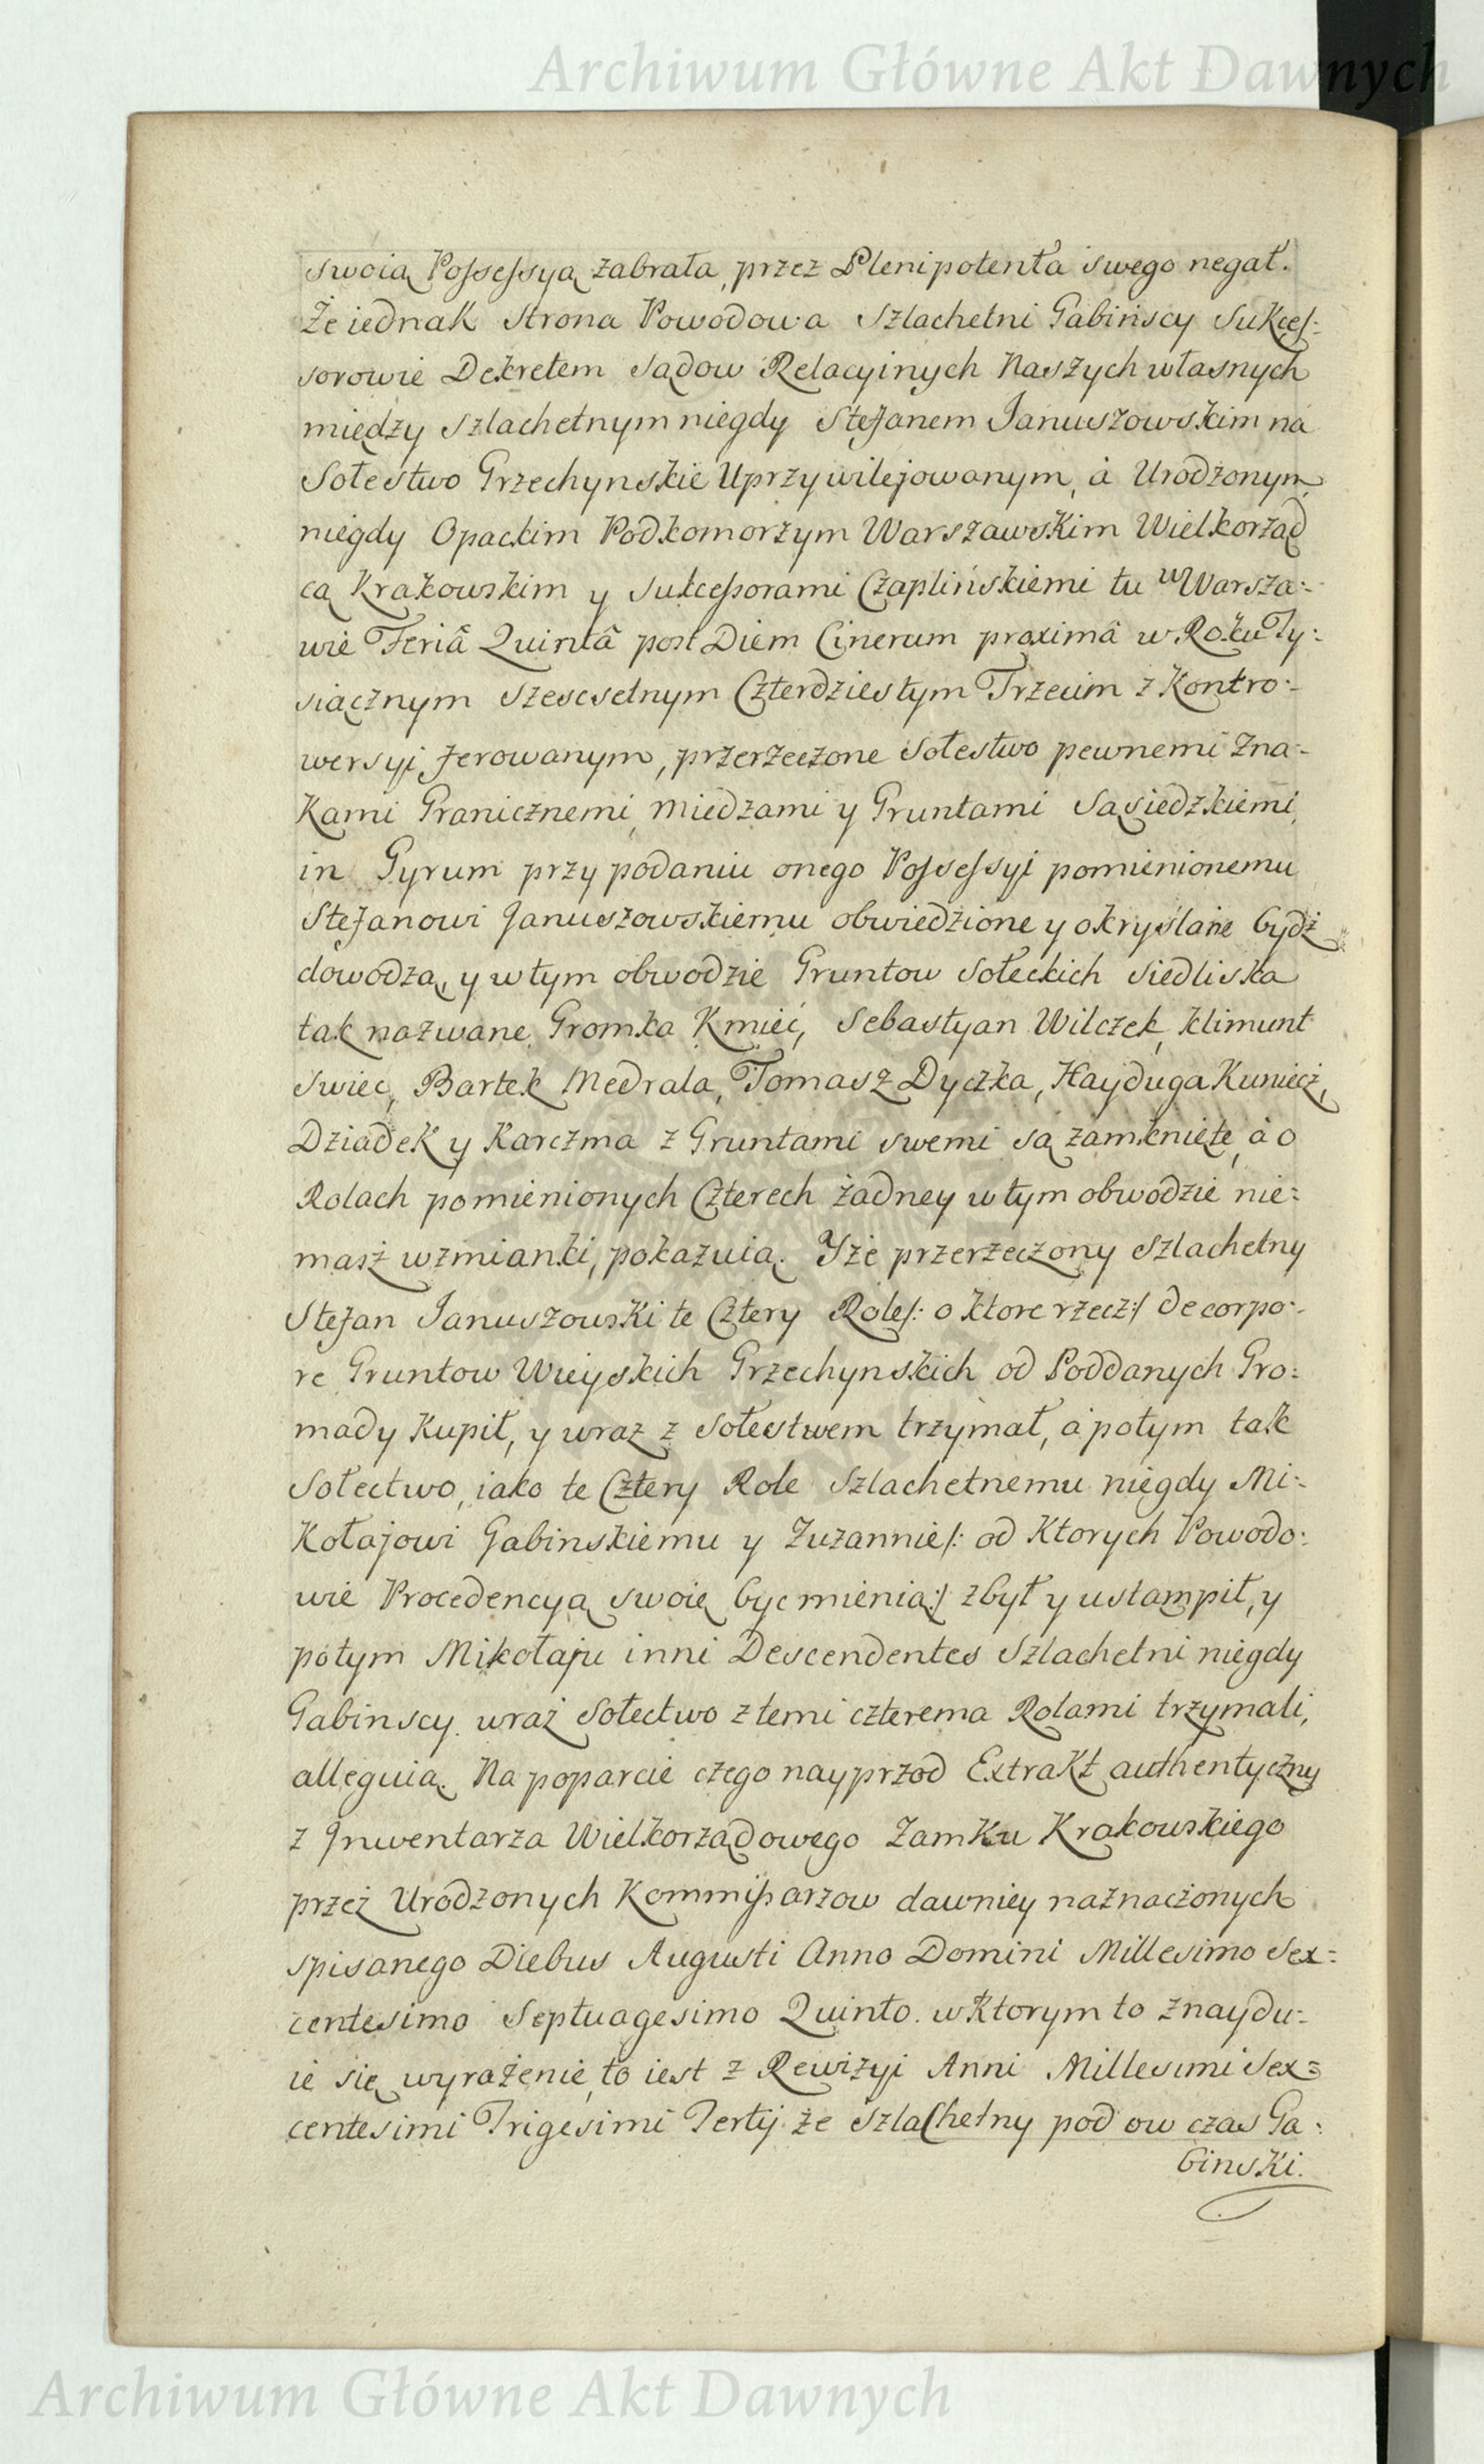 Archiwum Główne Akt Dawnych
swoią Possessyą zabrała, przez Plenipotenta swego negat.
Że iednak Strona Powodowa Szlachetni Gabińscy Sukces:
sorowie Dekretem Sądow Relacyinych Naszych własnych
między Szlachetnym niegdy Stefanem Januszowskim na
Sołestwo Grzechynskie Uprzywilejowanym, à Urodzonym
niegdy Opackim Podkomorzym Warszawskim Wielkorząd
cą Krakowskim y Sukcessorami Czaplińskiemi tu w Warsza:
wie Feriâ Quintâ post Diem Cinerum proximâ w Roku Ty:
siącznym Szescsetnym Czterdziestym Trzecim z Kontro:
wersyi ferowanym, przerzeczone Sołestwo pewnemi Zna:
Kami Granicznemi, Miedzami y Gruntami Sąsiedzkiemi,
in Gyrum przy podaniu onego Possessyi pomienionemu
Stefanowi Januszowskiemu obwiedzione y okryślane bydź
dowodzą, y w tym obwodzie Gruntow Sołeckich Siedliska
tak nazwane Gromka Kmieć, Sebastyan Wilczek, Klimunt
Swiec, Bartek Medrala, Tomasz Dyczka, Hayduga Kuniecz,
Dziadek y Karczma z Gruntami swemi są zamknięte, à o
Rolach pomienionych Czterech żadney w tym obwodzie nie:
masz wzmianki, pokazuią. Yże przerzeczony Szlachetny
Stefan Januszowski te Cztery Role/: o ktore rzecz:/ de corpo:
re Gruntow Wieyskich Grzechynskich od Poddanych Gro:
mady Kupił, y wraz z Sołestwem trzymał, à potym tak
Sołectwo, iako te Cztery Role Szlachetnemu niegdy Mi:
Kołajowi Gabinskiemu y Zuzannie/: od Ktorych Powodo:
wie Procedencyą swoię byc mienią:/ zbył y ustąmpił, y
potym Mikołaju inni Descendentes Szlachetni niegdy
Gabinscy wraz Sołectwo z temi czterema Rolami trzymali,
alleguią. Na poparcie czego nayprzod Extrakt authentyczny
z Jnwentarza Wielkorządowego Zamku Krakowskiego
przez Urodzonych Kommissarzow dawniey naznaczonych
spisanego Diebus Augusti Anno Domini Millesimo Sex:
centesimo Septuagesimo Quinto. w Ktorym to znaydu:
ie się wyrażenie, to iest z Rewizyi Anni Millesimi Sex:
centesimi Trigesimi Tertij że Szlachetny pod ow czas Ga:
binski.
Archiwum Główne Akt Dawnych